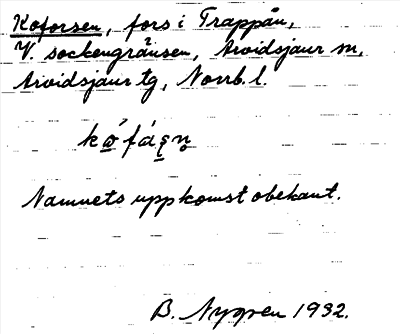 Koforsen, fors i Trappån,
V. sockengränsen, Arvidsjaur sn,
Arvidsjaur tg, Norrb. l.
Namnets uppkomst obekant.
B. Nygren 1932.